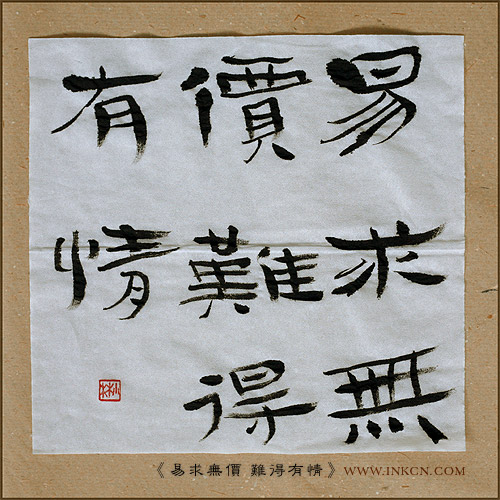 易求無
價難得
有情
《易求無價 難得有情》 WWW.INKCN.COM